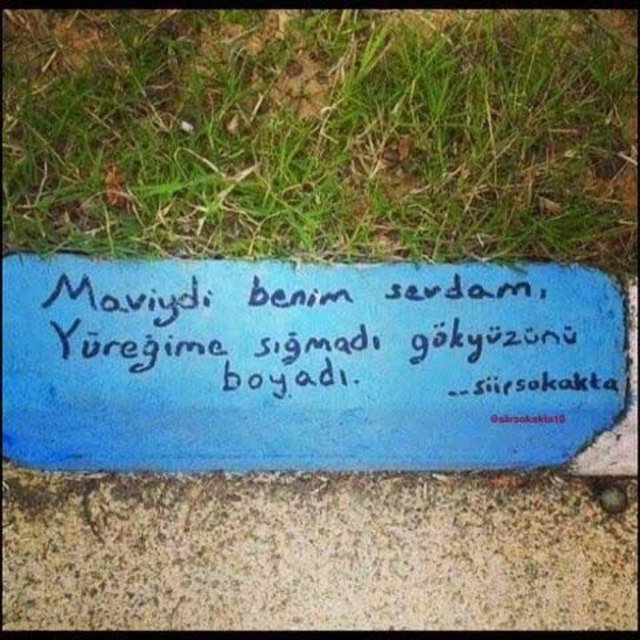 Maviydi benim sevdam,
Yüreğime sığmadı gökyüzünü
boyadı.
--siirsokakta
@siirsokakta10